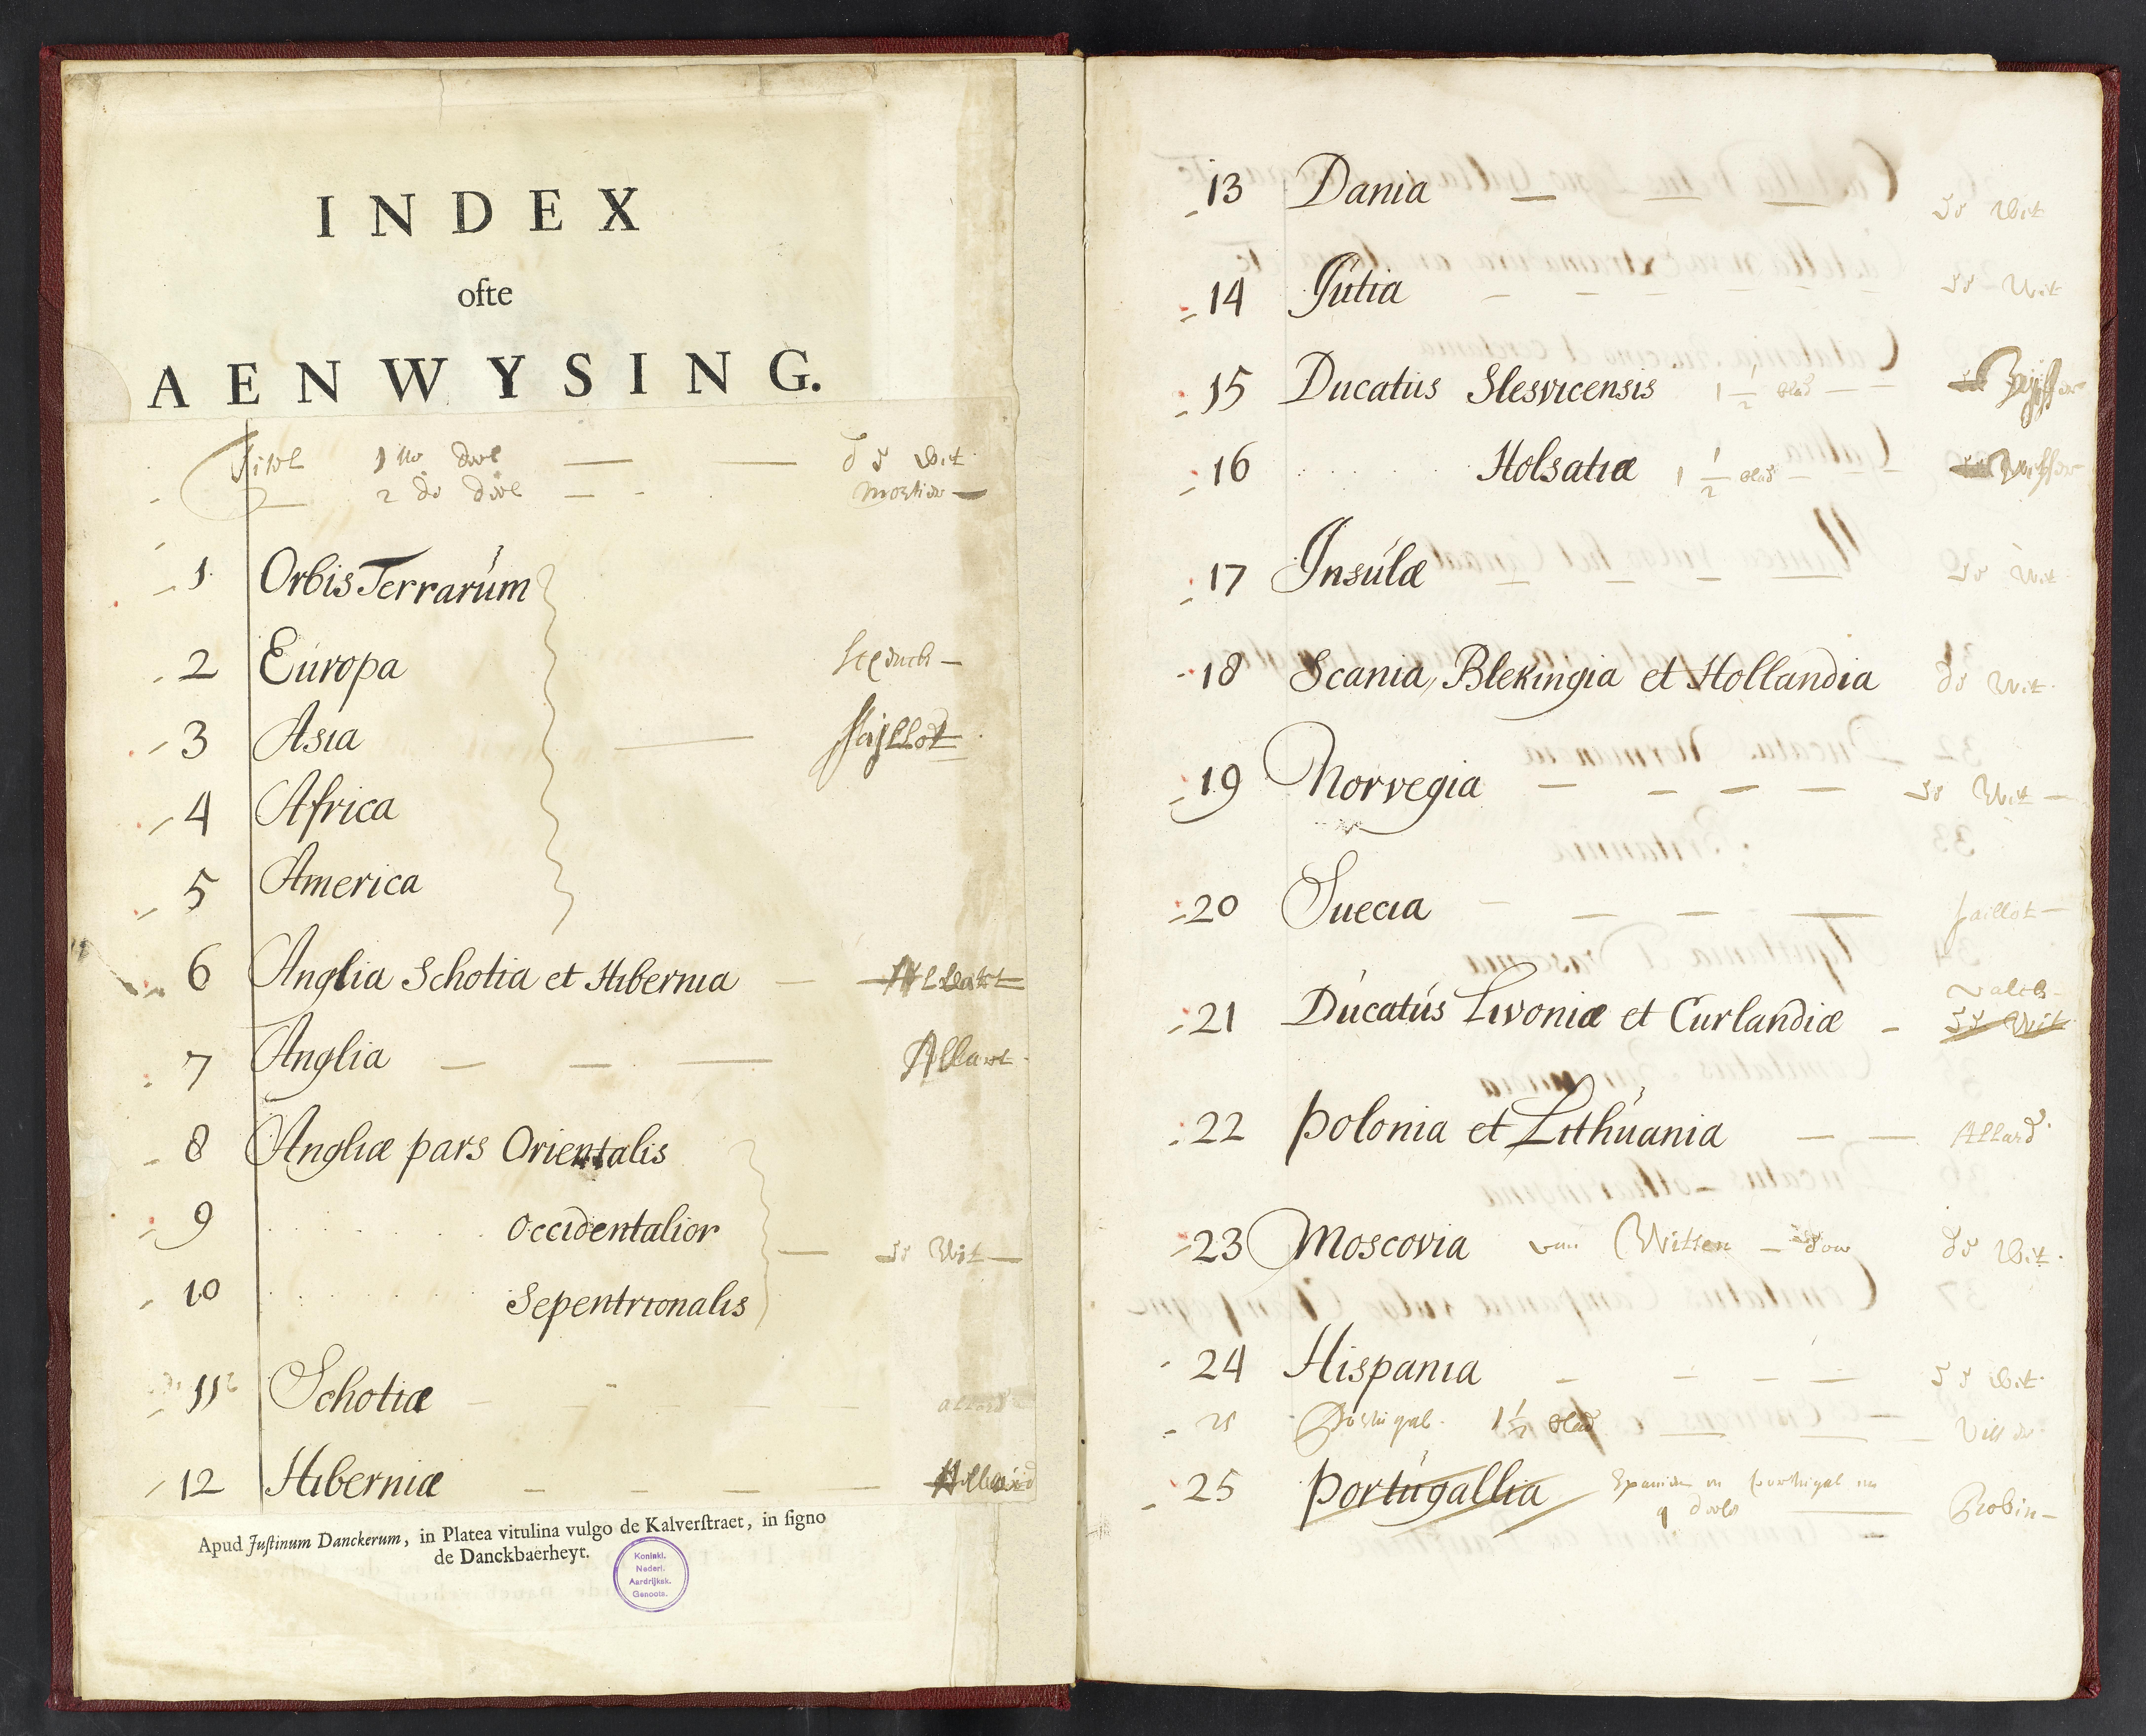 INDEX
ofte
AENWYSING.
Titel 1 ste deel — — de Wit
2 de deel — - mortier —
1 Orbis Terrarúm
2 Európa
3 Asia — Jaillot
4 Africa
5 America
6 Anglia Schotia et Hibernia — Allart
7 Anglia — — — Allart
8 Angliæ pars Orientalis
9 . . . . . . Occidentalior — de Wit —
10 . . . . . . Sepentrionalis
11 Schotiæ — — — — allard
12 Hiberniæ — — — — Allard
Apud Justinum Danckerum, in Platea vitulina vulgo de Kalverstraet, in signo
de Danckbaerheyt.
Koninkl.
Nederl.
Aardrijksk.
Genoots.
13 Dania — — — de Wit
14 Jútia — — — — de Wit
15 Ducatús Slesvicensis 1 1/2 blad — —
16 . . . . . Holsatiæ 1 1/2 blad —
17 Insúlæ — — — — de Wit
18 Scania, Blekingia et Hollandia de Wit
19 Norvegia — — — — de Wit —
20 Suecia — — — — Jaillot —
valck —
21 Dúcatús Livoniæ et Curlandiæ — de Wit
22 Polonia et Lithúania — — Allard
23 Moscovia van Witsen — de Wit
24 Hispania — — — — de Wit
25 Portugal 1 1/2 blad — — —
25 Portúgallia — Robin —